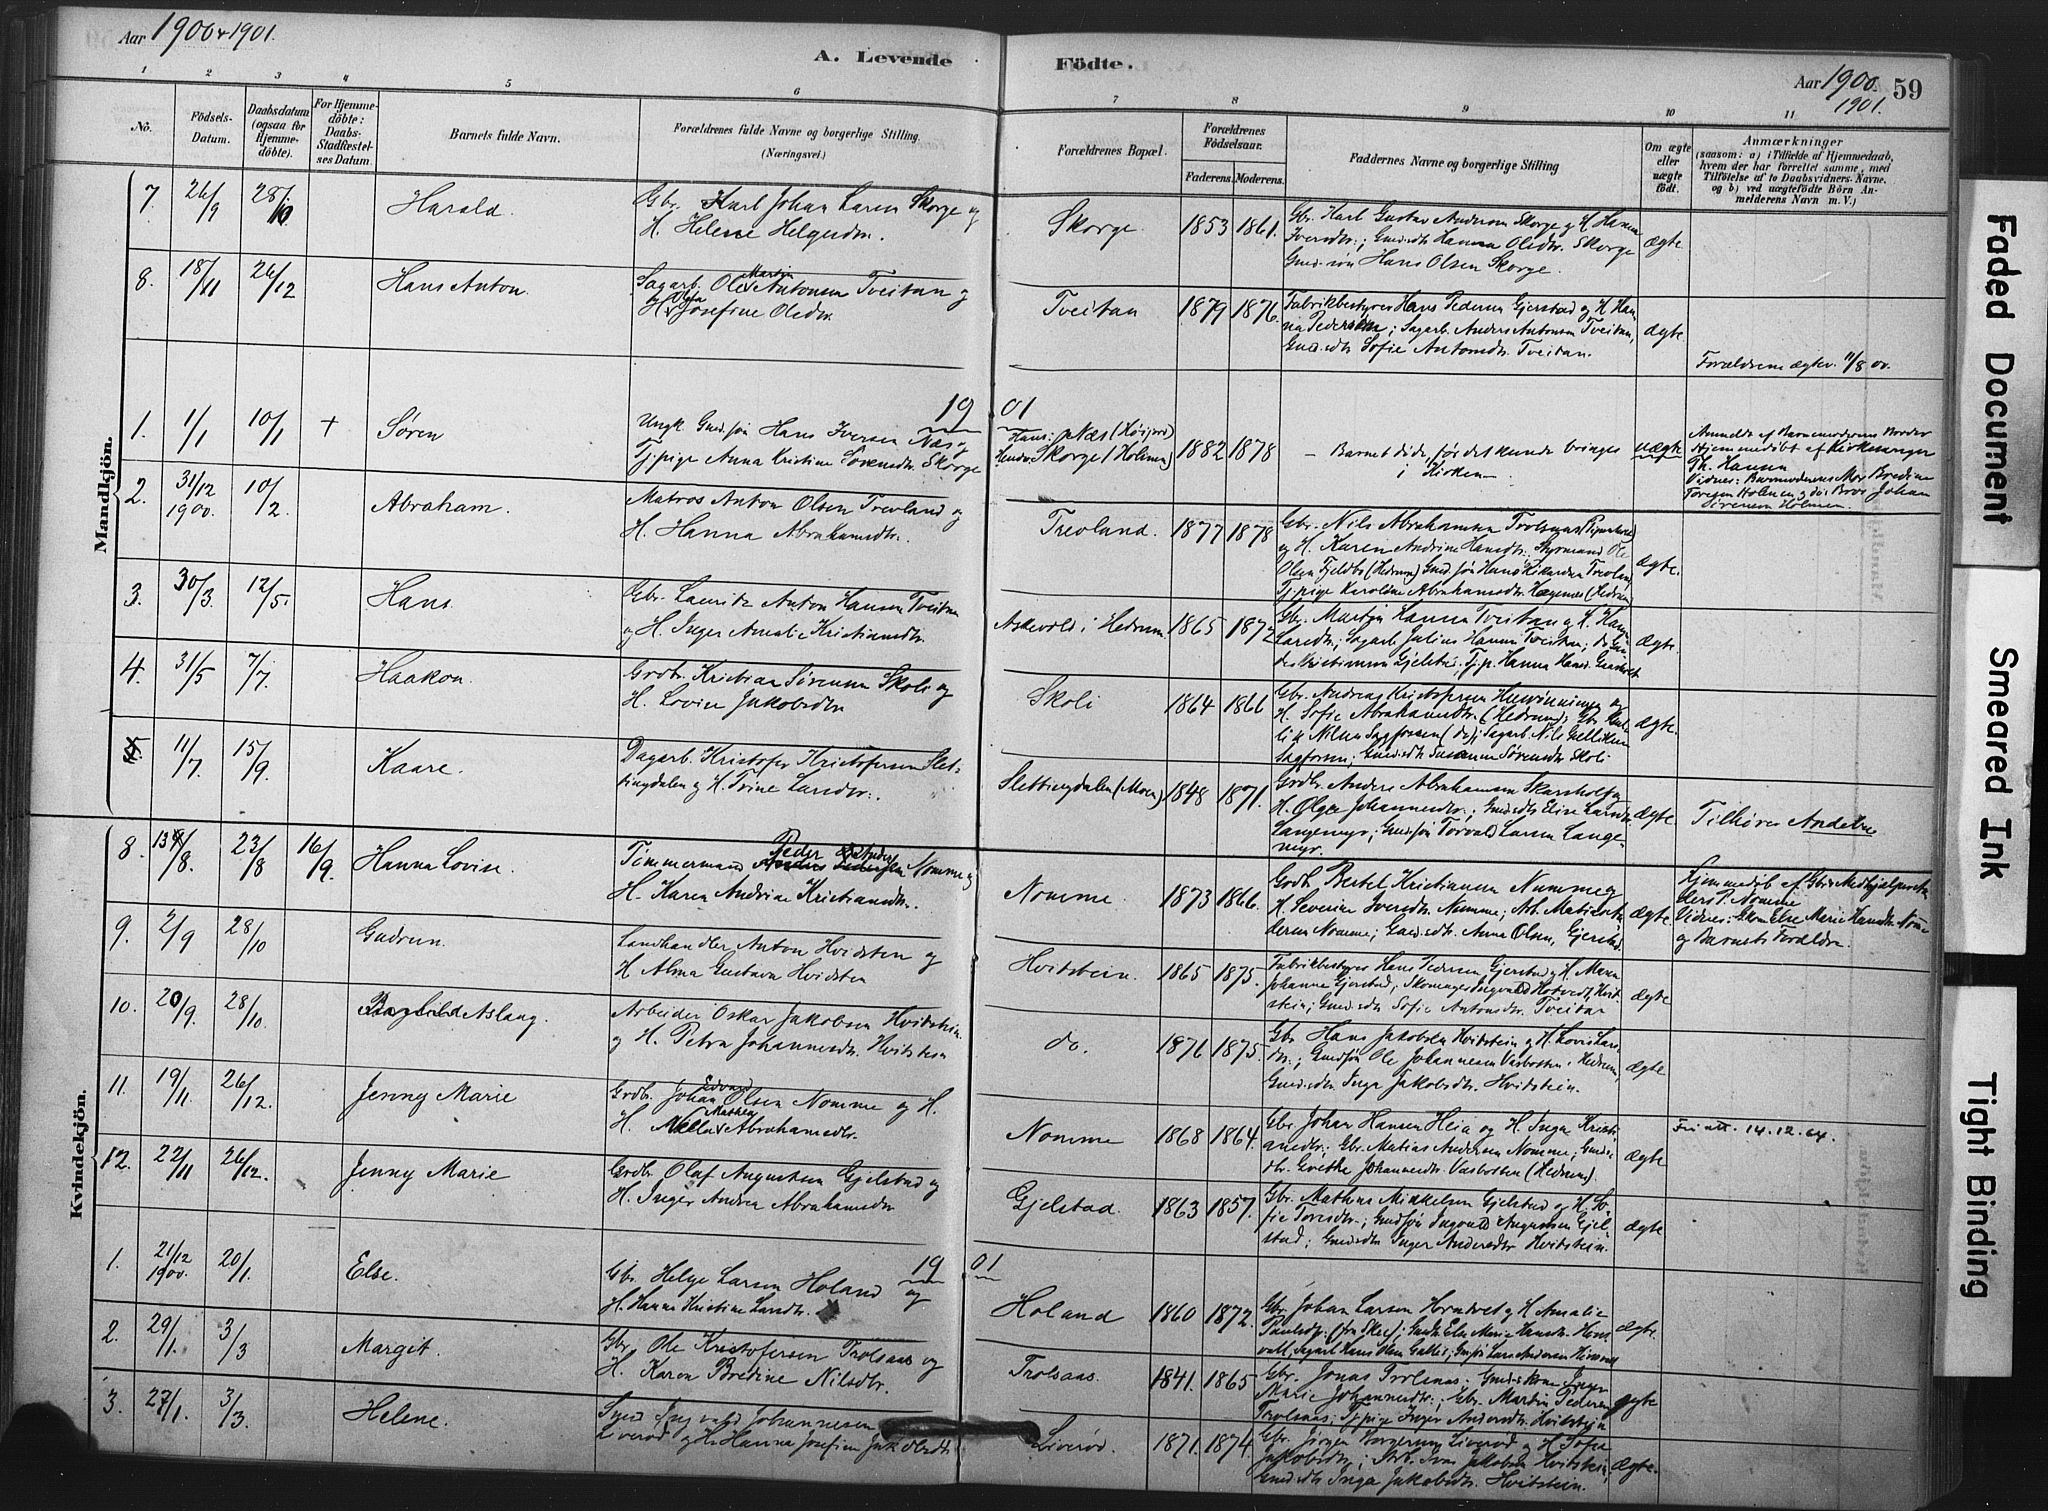 Aar 1900 & 1901.
A. Levende Födte.
Aar 1900. 1901. 59
1 2 3 4 5 6 7 8 9 10 11
No.
Födsels-Datum.
Daabsdatum (ogsaa for Hjemmedöbte).
For Hjemmedöbte: Daabs-Stadfæstelses Datum.
Barnets fulde Navn.
Forældrenes fulde Navne og borgerlige Stilling. (Næringsvei.)
Forældrenes Bopæl.
Forældrenes Födselsaar.
Faderens. Moderens.
Faddernes Navne og borgerlige Stilling
Om ægte eller uægte födt.
Anmærkninger
(saasom: a) i Tilfælde af Hjemmedaab,
hvem der har forrettet samme, med
Tilföielse af to Daabsvidners Navne,
og b) ved uægtefödte Börn Anmelderens Navn m. V.)
Mandkjön.
7. 26/9 28/10 Harald. Gbr. Karl Johan Larsen Skorge og
H. Helene Helgesdtr.
Skorge. 1853 1861.
Gbr. Karl Gustav Andersen Skorge og H. Hanna
Iversdtr.; Gmdsdtr Hanna Olesdtr. Skorge
Gmd.søn Hans Olsen Skorge. Ægte
8. 18/11 26/12 Hans Anton. Sagarb. Ole Martin Antonsen Tveitan og
H. Olga Josefine Olsdtr.
Tveitan 1879 1876.
Fabrikbestyrer Hans Pedersen Gjerstad og H. Hanna
Pedersen; Sagarb. Anders Antonsen Tveitan,
Gmdsdtr Sofie Antonsdtr. Tveitan. ægte
Forældrene ægtev. 11/8 00.
1901
1. 1/1 10/1 + Søren Ungk. Gmd.søn Hans Iversen Næs og
Tj.pige Anna Kristine Sørensdtr. Skorge
Hans: Næs (Høijord)
Hendes: Skorge (Holmen) 1882 1878
- Barnet døde, før det kunde bringes
i Kirken - uægte
Anmeldt af Barnemoderens Broder
Hjemmedøbt af Kirkesanger
Th. Hansen
Vidner: Barnemoderens Mor Bredine
Torgersen Holmen og dös Bror Johan
Sørensen Holmen.
2. 31/12 1900. 10/2 Abraham. Matros Anton Olsen Trevland og
H. Hanna Abrahamsdtr.
Trevland. 1877 1878
Gbr. Nils Abrahamsen Trolsaas
og H. Karen Andrine Hansdtr. Styrmand Ole
Olsen Fjeldbo (Hedrum) Gmd.søn Hans Rikardsen Trevland,
Tj.pige Karoline Abrahamsdtr. (Hedrum) ægte.
3. 30/3 12/5. Hans. Gbr. Lauritz Anton Hansen Tveitan
og H. Inger Amalie Kristiansdtr.
Askevold i Hedrum. 1865 1872
Gbr. Martin Hansen Tveitan og H.
Larsdtr; Sagarb Julius Hansen Tveitan;
Kristiansen Gjelstad; Tj.p. Hanna ægte.
4. 31/5 7/7. Haakon. Grdbr. Kristian Sørensen Skoli og
H. Lovise Jakobsdtr
Skoli 1864 1866
Gbr. Andreas Kristofersen og
H. Sofie Abrahamsdtr. (Hedrum);
Nilsen Sagfossen (do); Sagarb. Nils
Sagfossen; Gmdsdtr Susanne Sørensdtr Skoli ægte.
5. 11/7. 15/9. Kaare. Dagarb. Kristofer Kristofersen Slettingdalen
og H. Trine Larsdtr.
Slettingdalen (Moen) 1848 1871.
Grdbr. Anders Abrahamsen Skarsholt og
H. Olga Johannesdtr.; Gmdsdtr Elise Larsdtr
Langemyr; Gmdsøn Torvald Larsen Langemyr. ægte.
Tilhører Andebu
Kvindekjön.
8. 13/8. 23/8 16/9. Hanna Lovise. Tømmermand Peder Anders. Nomme og
H. Karen Andrine Kristiansdtr.
Nomme. 1873 1866.
Grdb. Bertel Kristiansen Nomme og
H. Severine Iversdtr. Nomme; Arb. Matias
Nomme; Gmdsdtr. Anna Olsen, Gjerstad. ægte
Hjemmedøb. af Gbr & Medhjælper
P. Nomme
Vidner: Gkone Else Marie Hansdtr. Nomme
og Barnets Forældre.
9. 2/9 28/10 Gudrun. Landhandler Anton Hvidsten og
H Alma Gustava Hvidsten
Hvitstein. 1865 1875.
Fabrikbestyrer Hans Pedersen Gjerstad og H. Maren
Johanne Gjerstad; Skomager Ingvald Hotvedt, Hvitstein;
Gmdsdtr Sofie Antonsdtr. Tveitan ægte
10. 20/9. 28/10. Borghild Aslaug. Arbeider Oskar Jakobsen Hvitstein
og H. Petra Johannesdtr. Hvitstein
do. 1876 1875.
Gbr Hans Jakobsen Hvitstein og H. Lovise Larsdtr.;
Gmdsøn Ole Johannesen Vasbotten i Hedrum,
Gmdsdtr. Inga Jakobsdtr. Hvitstein. ægte
11. 19/11. 26/12. Jenny Marie Grdbr. Johan Edvard Olsen Nomme og H.
H. Nella Mathea Abrahamsdtr.
Nomme 1868 1864.
Gbr. Johan Hansen Heia og H. Inga Kristiansdtr;
Gbr. Matias Andersen Nomme; Gmdsdtr.
Grethe Johannesdtr. Vasbotten (Hedrum). Ægte
Fri att. 14.12.64.
12. 22/11 26/12. Jenny Marie Grdbr. Olaf Augustsen Gjelstad og
H. Inger Andrea Abrahamsdtr
Gjelstad. 1863 1857.
Gbr. Mathias Mikkelsen Gjelstad og H. Sofie
Toresdtr.; Gmdsøn Ingvald Augustsen Gjelstad;
Gmdsdtr Inger Andersdtr Hvitstein. ægte
1901
1. 21/12 1900. 20/1. Else. Gbr. Helge Larsen Holand og
H. Hanna Kristine Larsdtr.
Holand 1860 1872.
Gbr. Johan Larsen Horntvet og H Amalie
Paulsdtr. (fra Skee); Gmdtr. Else Marie Hansdtr.
Sagarb Hans Olsen; Gmsøn Lars Andersen ægte.
2. 29/1. 3/3 Margit. Gbr. Ole Kristofersen Trolsaas og
H. Karen Bredine Nilsdtr.
Trolsaas. 1841. 1865
Gbr. Jonas Trolsaas; Gmdskone Inger
Marie Johannesdtr.; Gbr. Martin Pedersen
Trolsaas; Tj.pige Inger Andersdtr. Hvitstein ægte
3. 27/1. 3/3. Helene. Smed Ingvald Johannesen
Liverød og H. Hanna Josefine Jakobsdtr.
Liverød. 1871. 1874.
Gbr. Jörgen Borgersen Liverød og H. Sofie
Jakobsdtr; Ivar Jakobsen Hvitstein;
Gmdsdtr Inga Jakobsdtr. Hvitstein. ægte.
Faded Document
Smeared Ink
Tight Binding